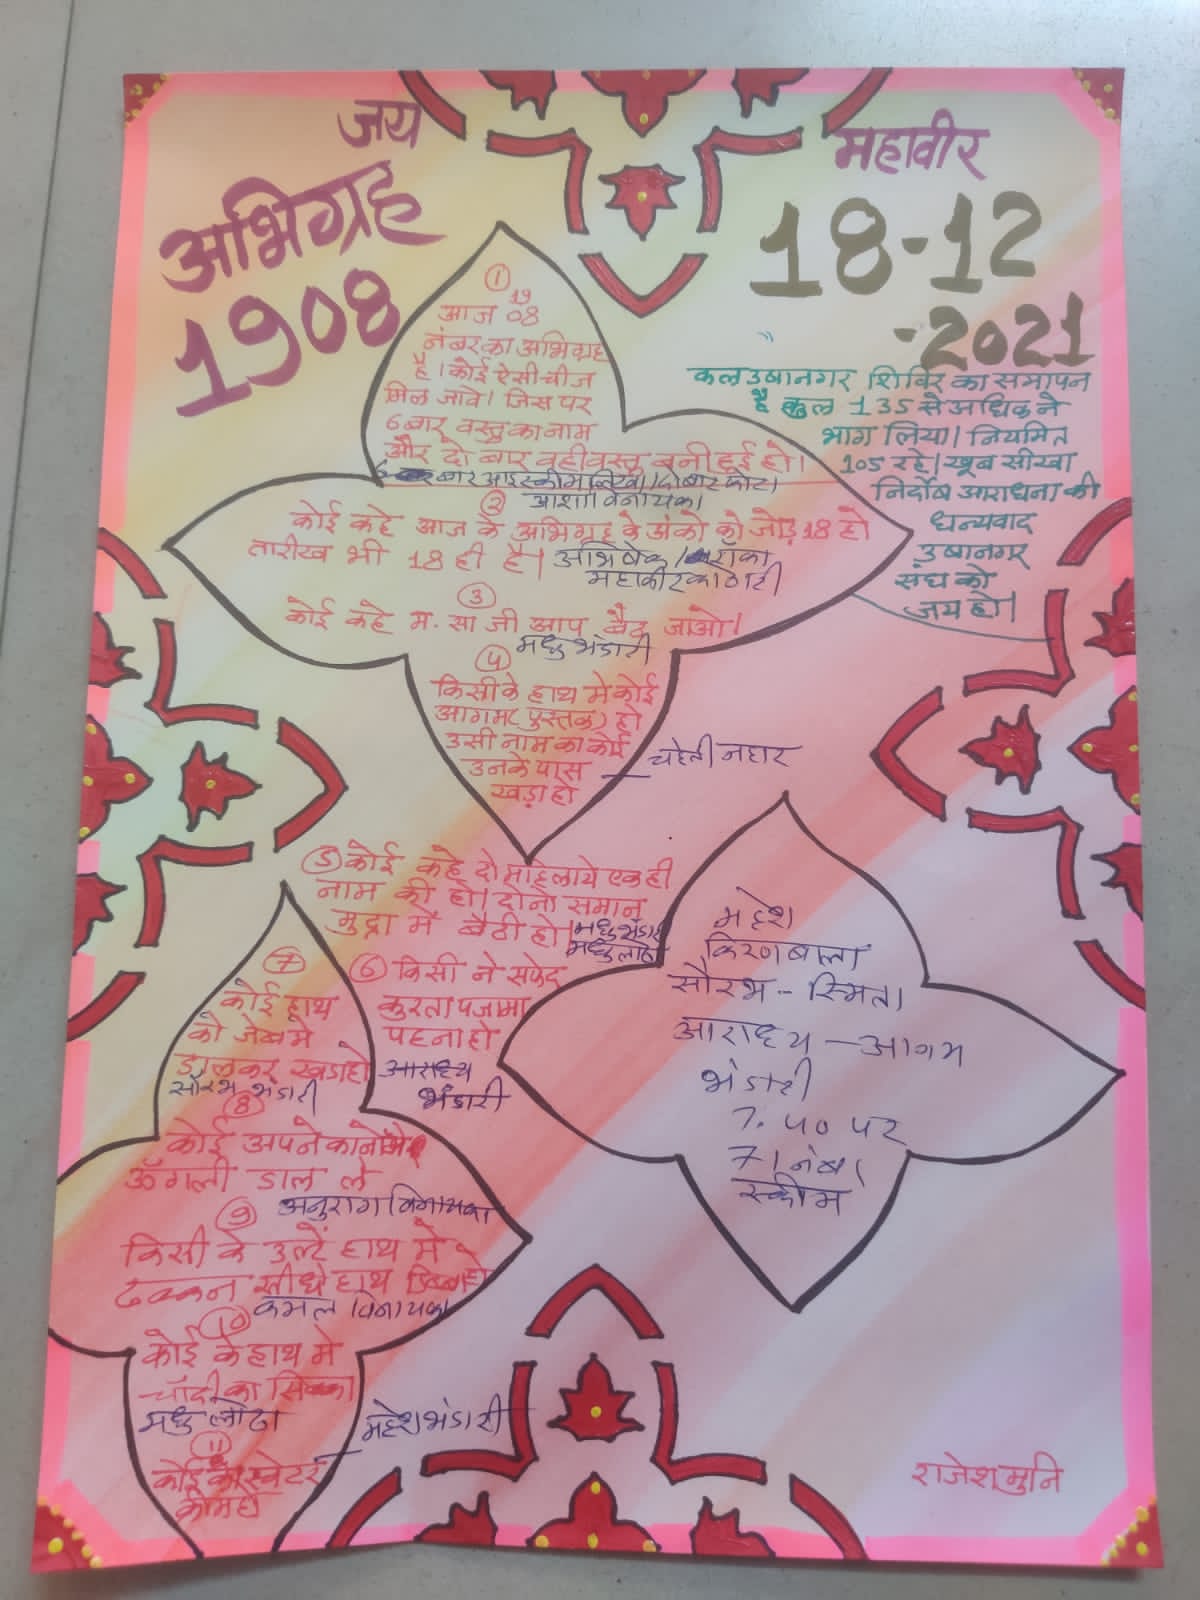 जय
महावीर
अभिग्रह
1908
18-12
-2021
कल उषानगर शिविर का समापन
है कुल 135 से अधिक ने
भाग लिया। नियमित
105 रहे। खूब सीखा
निर्दोष आराधना की
धन्यवाद
उषानगर
संघ को
जय हो।
①
आज 1908
नंबर का अभिग्रह
है। कोई ऐसी चीज
मिल जावे। जिस पर
6 बार वस्तु का नाम
और दो बार वही वस्तु बनी हुई हो।
6 बार आइस्क्रीम लिखा। दो बार फोटो।
② आशा विनायका
कोई कहे आज के अभिग्रह के अंको को जोड़ 18 हो
तारीख भी 18 ही है। अभिषेक रांका
③
कोई कहे म. सा जी आप बैठ जाओ।
मधु भंडारी
④
किसी के हाथ मे कोई
आगम (पुस्तक) हो
उसी नाम का कोई
उनके पास
खड़ा हो
नहार
⑤ कोई कहे दो महिलाये एक ही
नाम की हो। दोनो समान
मुद्रा में बैठी हो। मधु भंडारी
मधु लोढा
⑥ किसी ने सफेद
कुरता पजामा
पहना हो
आराध्य
भंडारी
⑦
कोई हाथ
को जेब मे
डालकर खडा हो
सौरभ भंडारी
⑧
कोई अपने कानो मे
ऊँगली डाल ले
अनुराग विनायका
⑨
किसी के उल्टे हाथ मे
ढक्कन सीधे हाथ डिब्बा हो
कमल विनायका
⑩
कोई के हाथ मे
चाँदी का सिक्का
मधु लोढा
⑪
महेश भंडारी
कोई स्वेटर
महेश
किरणबाला
सौरभ - स्मिता
आराध्य - आगम
भंडारी
7.50 पर
71 नंबर
स्कीम
राजेश मुनि